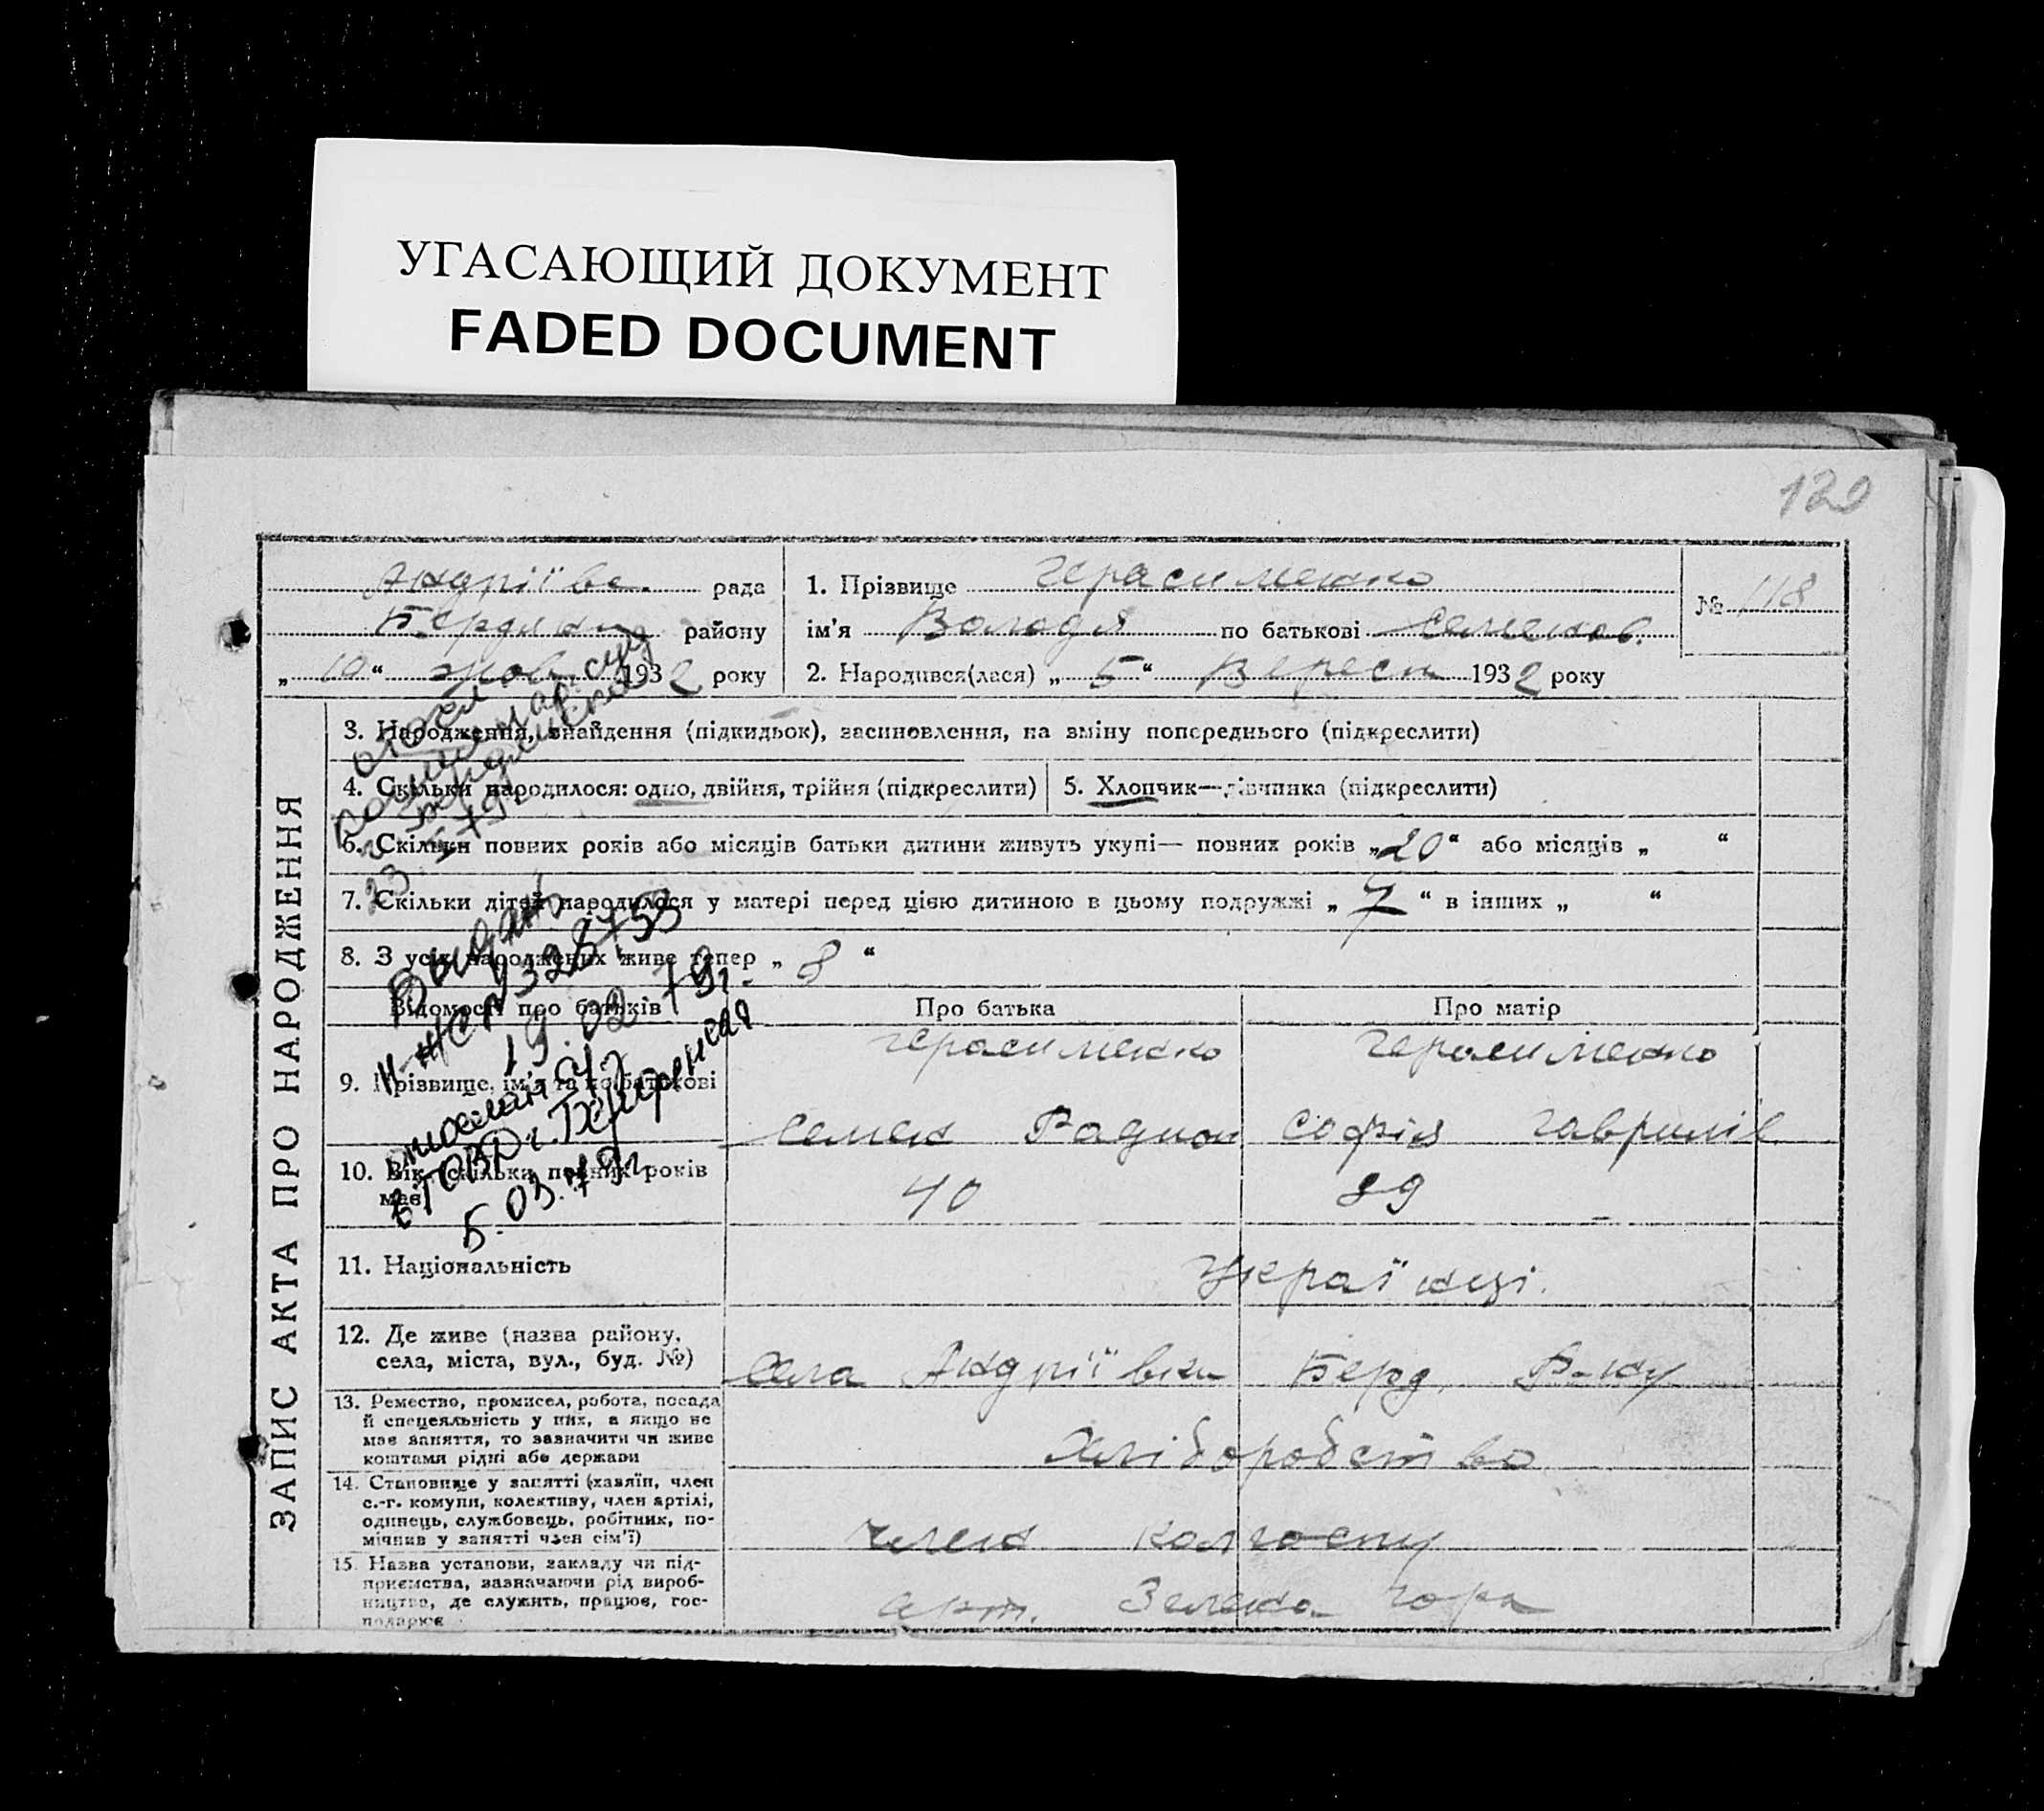 УГАСАЮЩИЙ ДОКУМЕНТ
FADED DOCUMENT
120
Андріївс. рада
Бердянськ району
„ 10 “ жов 1932 року
1. Прізвище Герасименко
ім'я Володя по батькові Семенов.
2. Народився(лася) „ 5 “ Вересн 1932 року
№ 118
ЗАПИС АКТА ПРО НАРОДЖЕННЯ
3. Народження, знайдення (підкидьок), засиновлення, на зміну попереднього (підкреслити)
4. Скільки народилося: одно, двійня, трійня (підкреслити)
5. Хлопчик—дівчинка (підкреслити)
6. Скільки повних років або місяців батьки дитини живуть укупі— повних років „ 20 “ або місяців „ “
7. Скільки дітей народилося у матері перед цією дитиною в цьому подружжі „ 7 “ в інших „ “
8. З усіх народжених живе тепер „ 8 “
Відомості про батьків
Про батька
Про матір
9. Прізвище, ім'я та по батькові
Герасименко
Семен Радион
Герасименко
Софія Гаврилів
10. Вік, скільки повних років
має
40
39
11. Національність
Українці.
12. Де живе (назва району,
села, міста, вул., буд. №)
Села Андріївки Берд. Р-ну
13. Ремество, промисел, робота, посада
й спецеяльність у них, а якщо не
має заняття, то зазначити чи живе
коштами рідні або держави
Хліборобство
14. Становище у занятті (хазяїн, член
с.-г. комуни, колективу, член артілі,
одинець, службовець, робітник, по-
мічник у занятті член сім'ї)
член колгоспу
15. Назва установи, закладу чи під-
приємства, зазначаючи рід вироб-
ництва, де служить, працює, гос-
подарює
арт. Зелена гора
23 79г
Выдано
328755
19.02 79г.
в ГОВД г.
5.03.79г.